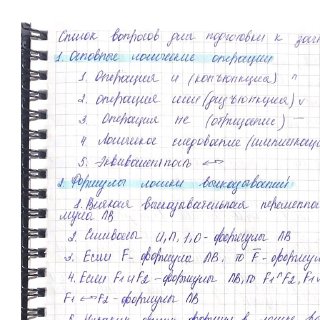 Список вопросов для подготовки к зач
1. Основные логические операции
1. Операция и (конъюнкция) ^
2. операция или (дизъюнкция) v
3. Операция не (отрицание) —
4 Логическое следование (импликация
5. Эквивалентность ↔
2. Формулы логики высказываний
1. Всякая высказывательная перемен
мула ЛВ
2. Символы И, Л, 1, 0 - формулы ЛВ
3. Если F - формула ЛВ, то F - форму
4. Если F1 и F2 - формулы ЛВ, то F1^F2, F1v
F1 ↔ F2 - формулы ЛВ